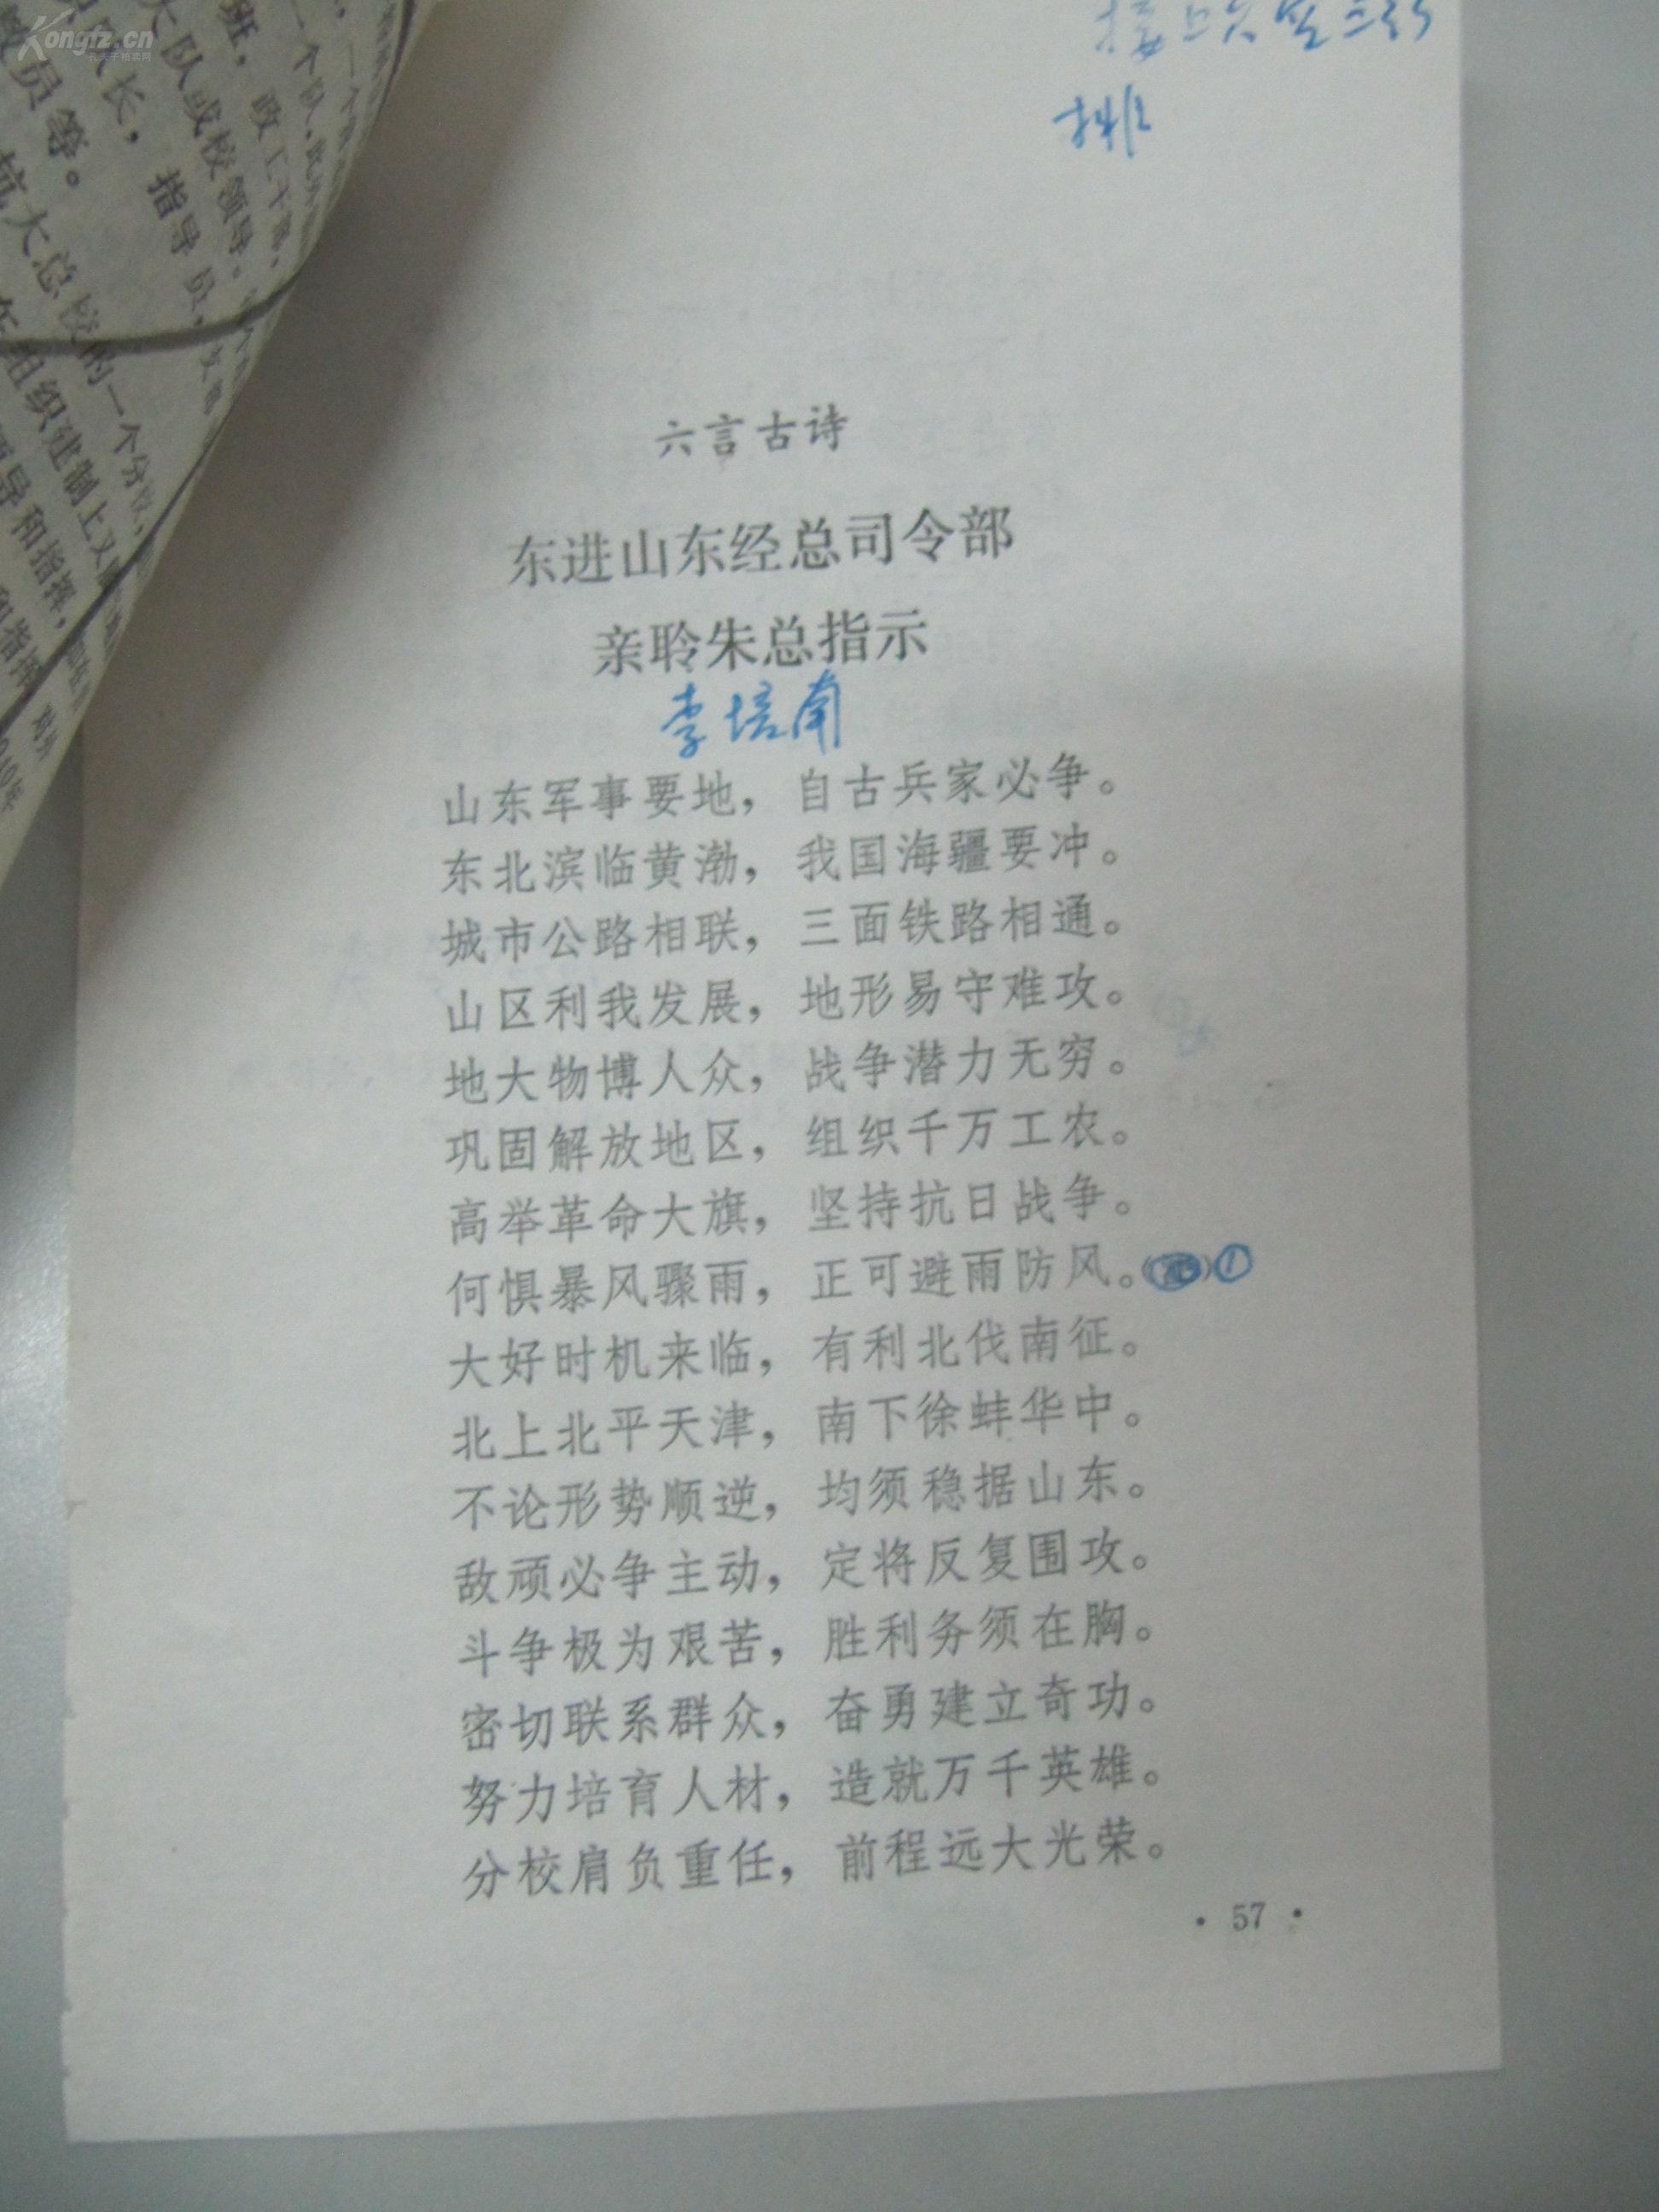 Kongfz.cn
班，政工干部、
一个队，
大队或校领导。
队长，指导员、
教员等。
抗大总校的一个分校，
组织建制上又
导和指挥，
排
六言古诗
东进山东经总司令部
亲聆朱总指示
李培南
山东军事要地，自古兵家必争。
东北滨临黄渤，我国海疆要冲。
城市公路相联，三面铁路相通。
山区利我发展，地形易守难攻。
地大物博人众，战争潜力无穷。
巩固解放地区，组织千万工农。
高举革命大旗，坚持抗日战争。
何惧暴风骤雨，正可避雨防风。①
大好时机来临，有利北伐南征。
北上北平天津，南下徐蚌华中。
不论形势顺逆，均须稳据山东。
敌顽必争主动，定将反复围攻。
斗争极为艰苦，胜利务须在胸。
密切联系群众，奋勇建立奇功。
努力培育人材，造就万千英雄。
分校肩负重任，前程远大光荣。
· 57 ·